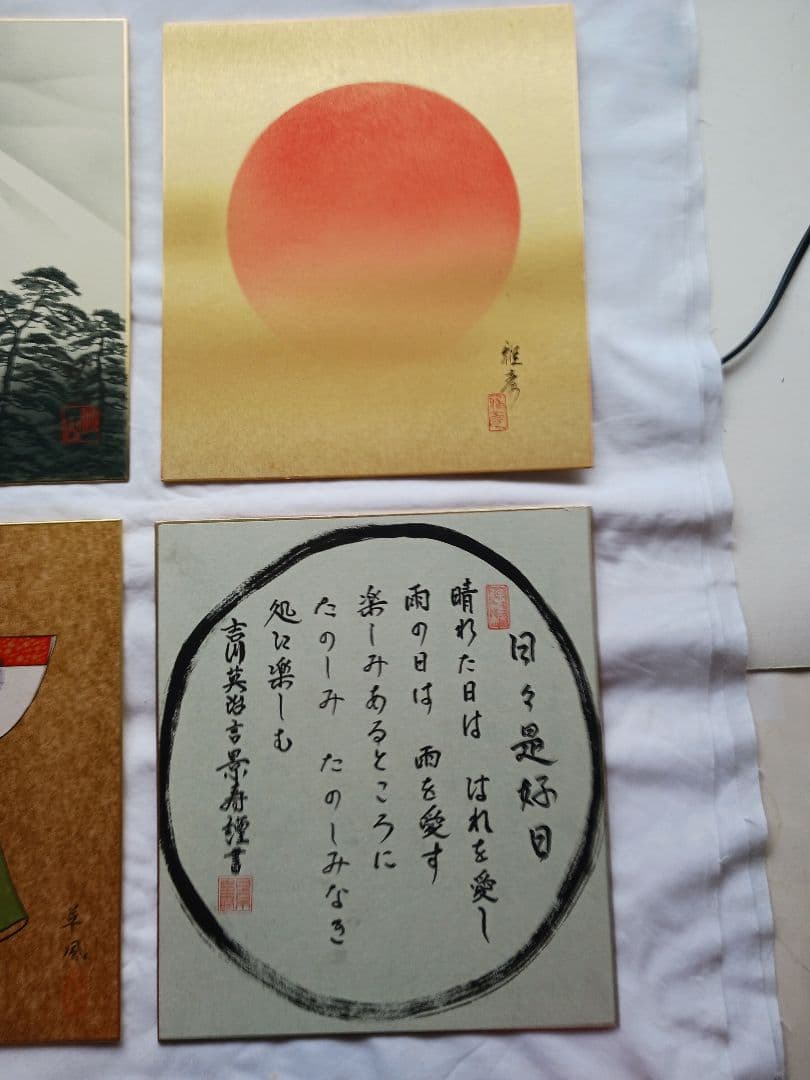 雅彦
日々是好日
晴れた日は はれを愛し
雨の日は 雨を愛す
楽しみあるところに
たのしみ たのしみなき
処に楽しむ
吉川英治言 景寿謹書
草風